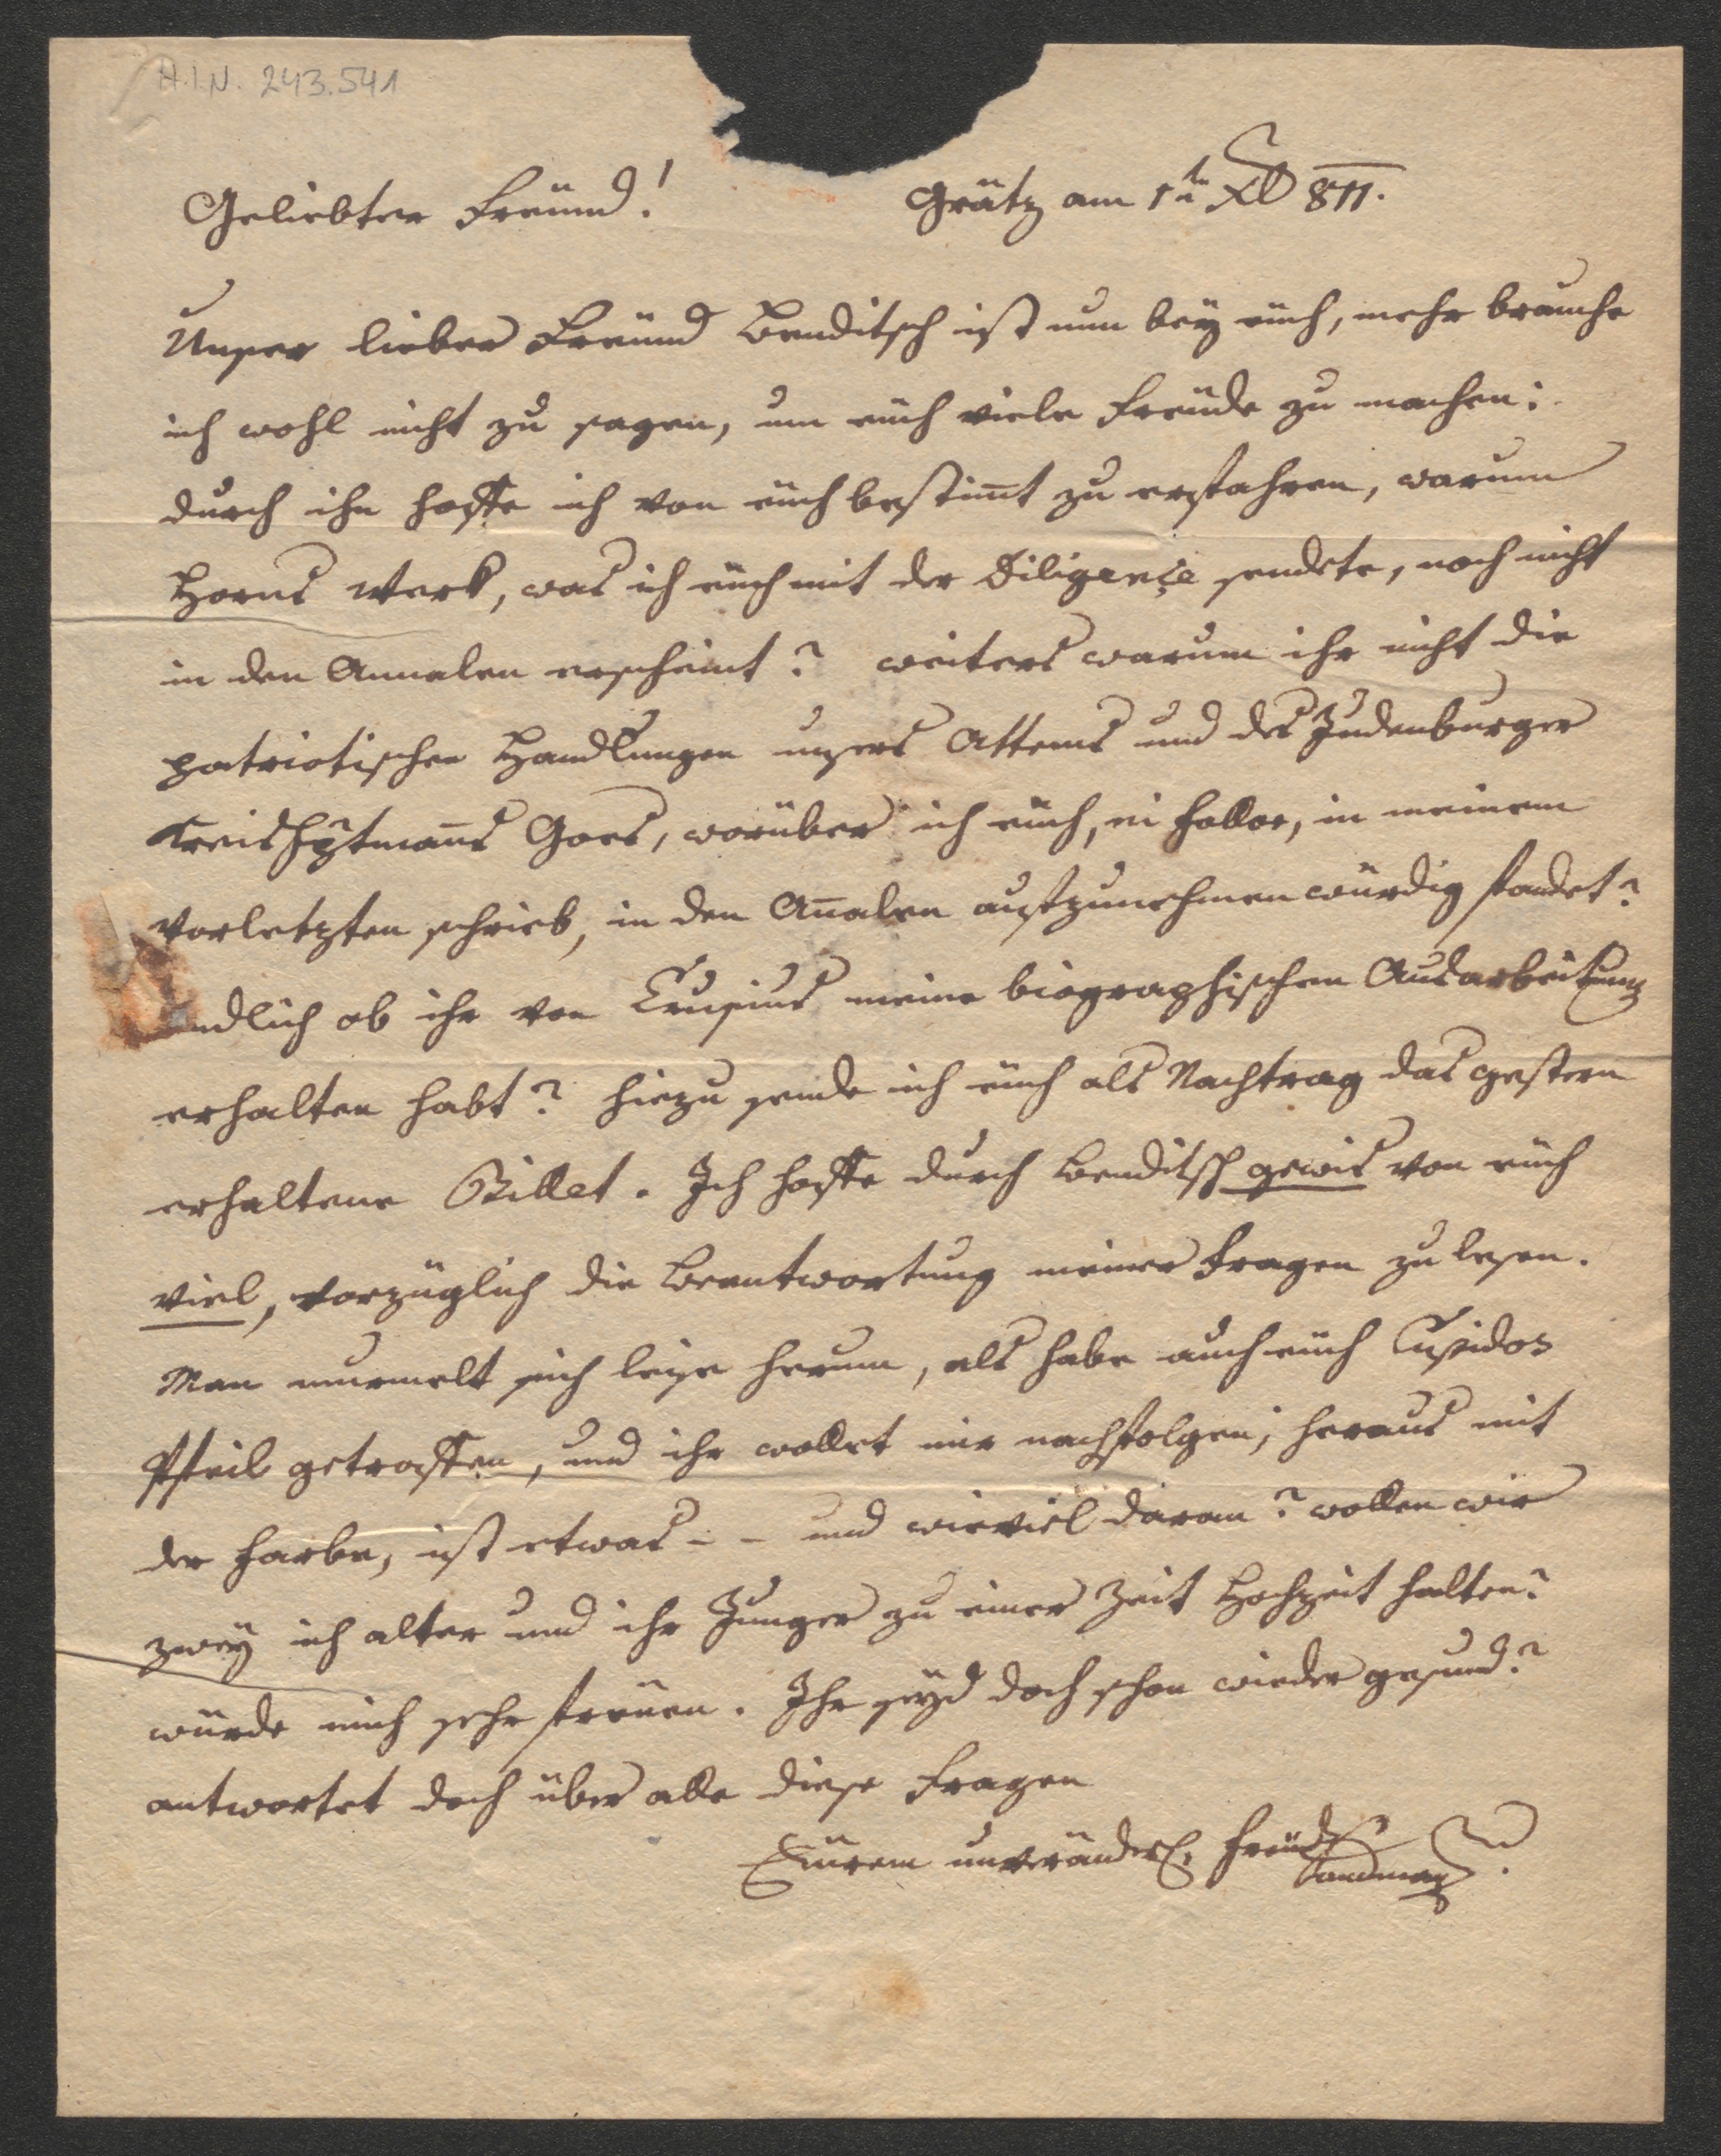 H.I.N. 243.541
Geliebter Freund! Grätz am 1ten Xb 811.
Unser lieber Freund Benditsch ist nun bey euch, mehr brauche
ich wohl nicht zu sagen, um euch viele Freude zu machen;
durch ihn hoffe ich von euch bestim̅t zu erfahren, warum
Horns Werk, was ich euch mit der Diligençe sendete, noch nicht
in den Annalen erscheint? weiters warum ihr nicht die
patriotischen Handlungen unsers Attems und des Judenburger
Kreishptman̅s Goes, worüber ich euch, ni fallor, in meinem
vorletzten schrieb, in den An̅alen aufzunehmen würdig fandet?
endlich ob ihr von Crusius meine biographischen Ausarbeitung
erhalten habt? hiezu sende ich euch als Nachtrag das gestern
erhaltene Billet. Ich hoffe durch Benditsch gewis von euch
viel, vorzüglich die Beantwortung meiner Fragen zu lesen.
Man murmelt sich leise herum, als habe auch euch Cupidos
Pfeil getroffen, und ihr wollet mir nachfolgen; heraus mit
der Farbe, ist etwas - - und wieviel daran? wollen wir
zwey ich alter und ihr Junger zu einer Zeit Hochzeit halten?
würde mich sehr freuen. Ihr seyd doch schon wieder gesund?
antwortet doch über alle diese Fragen
Eurem unveränderl. Freund